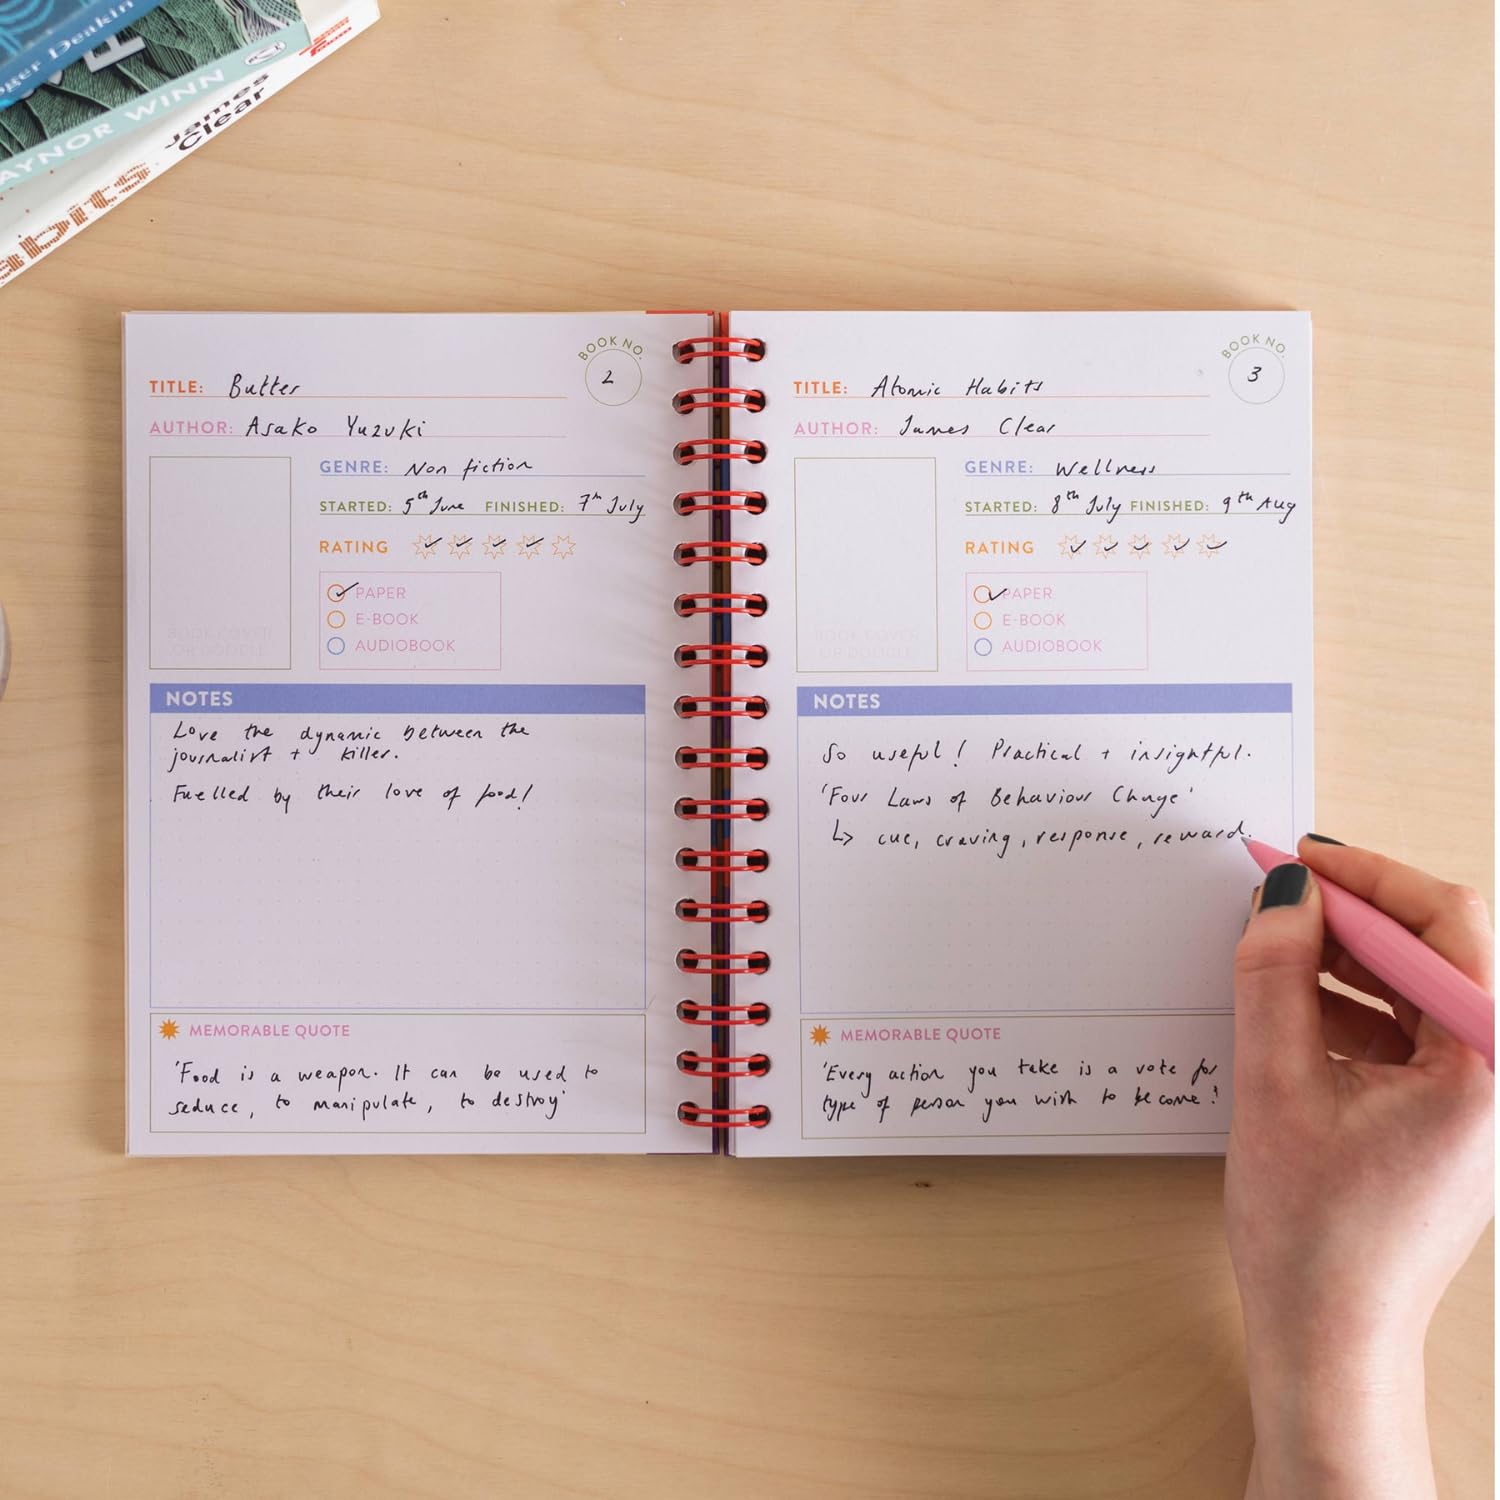 ger Deakin
AYNOR WINN
abits
James
Clear
BOOK NO.
2
TITLE: Butter
AUTHOR: Asako Yuzuki
GENRE: Non fiction
STARTED: 5th June FINISHED: 7th July
RATING
PAPER
E-BOOK
AUDIOBOOK
BOOK COVER
OR DOODLE
NOTES
Love the dynamic between the
journalist + killer.
Fuelled by their love of food!
MEMORABLE QUOTE
'Food is a weapon. It can be used to
seduce, to manipulate, to destroy'
BOOK NO.
3
TITLE: Atomic Habits
AUTHOR: James Clear
GENRE: Wellness
STARTED: 8th July FINISHED: 9th Aug
RATING
PAPER
E-BOOK
AUDIOBOOK
BOOK COVER
OR DOODLE
NOTES
So useful! Practical + insightful.
'Four Laws of Behaviour Change'
↳ cue, craving, response, reward.
MEMORABLE QUOTE
'Every action you take is a vote for
type of person you wish to become!